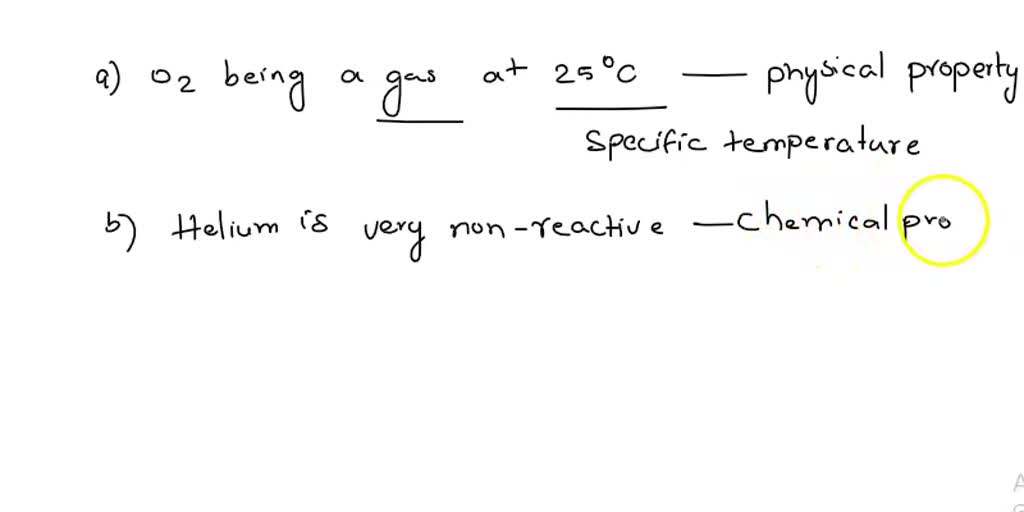 a) O2 being a gas at 25°C — physical property
specific temperature
b) Helium is very non-reactive — chemical pro